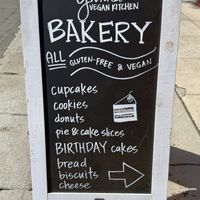 VEGAN KITCHEN
BAKERY
ALL GLUTEN-FREE & VEGAN
cupcakes
cookies
donuts
pie & cake slices
BIRTHDAY cakes
bread
biscuits
cheese